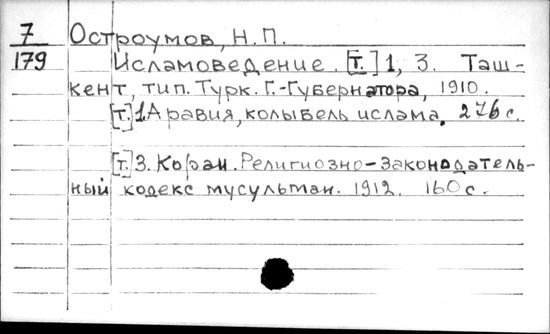 7 Остроумов, Н.П.
179 Исламоведение. [т.] 1, 3. Таш-
кент, тип. Турк. Г.-Губернатора, 1910.
[т.] 1. Аравия, колыбель ислама. 276 с.
[т.] 3. Коран. Религиозно-законодатель-
ный кодекс мусульман. 1912. 160 с.